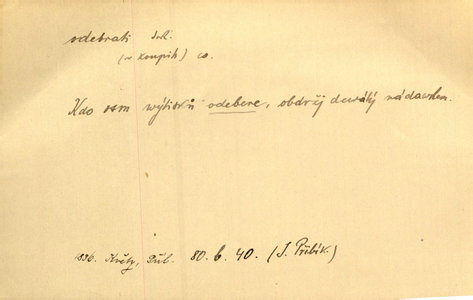 odebrati
(~ koupiti) co.
Kdo osm výtisků odebere, obdrží devátý nádavkem.
1836. Květy, Příl. 80. b. 40. (J. Pšbík.)